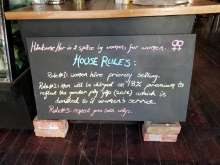 Handsome her is a space by women, for women.
HOUSE RULES:
Rule #1: women have priority seating.
Rule #2: men will be charged an 18% premium to
reflect the gender pay gap (2016) which is
donated to a women's service.
Rule #3: respect goes both ways.